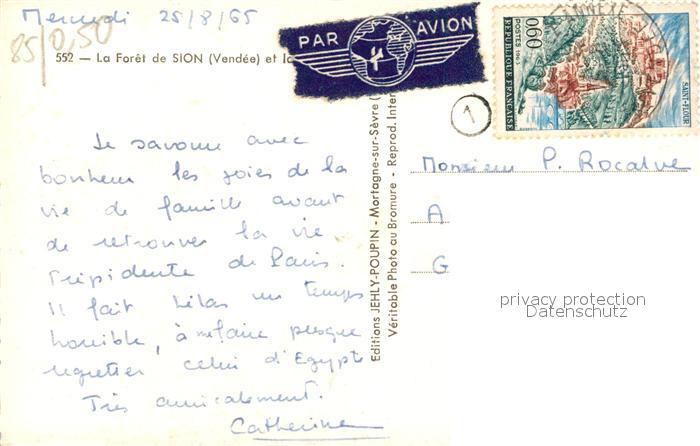 Mercredi 25/8/65
85/0,50
552 — La Forêt de SION (Vendée) et la
PAR AVION
0,60
POSTES 1965
REPUBLIQUE FRANÇAISE
SAINT-FLOUR
ANNEXE
1
Je savoure avec
bonheur les joies de la
vie de famille avant
de retrouver la vie
trépidente de Paris.
Il fait hélas un temps
horrible, à me faire presque
regretter celui d'Egypte
Très amicalement.
Catherine
Editions JEHLY-POUPIN - Mortagne-sur-Sèvre (
Véritable Photo au Bromure - Reprod. Inter
Monsieur P. Rocalve
A
G
privacy protection
Datenschutz